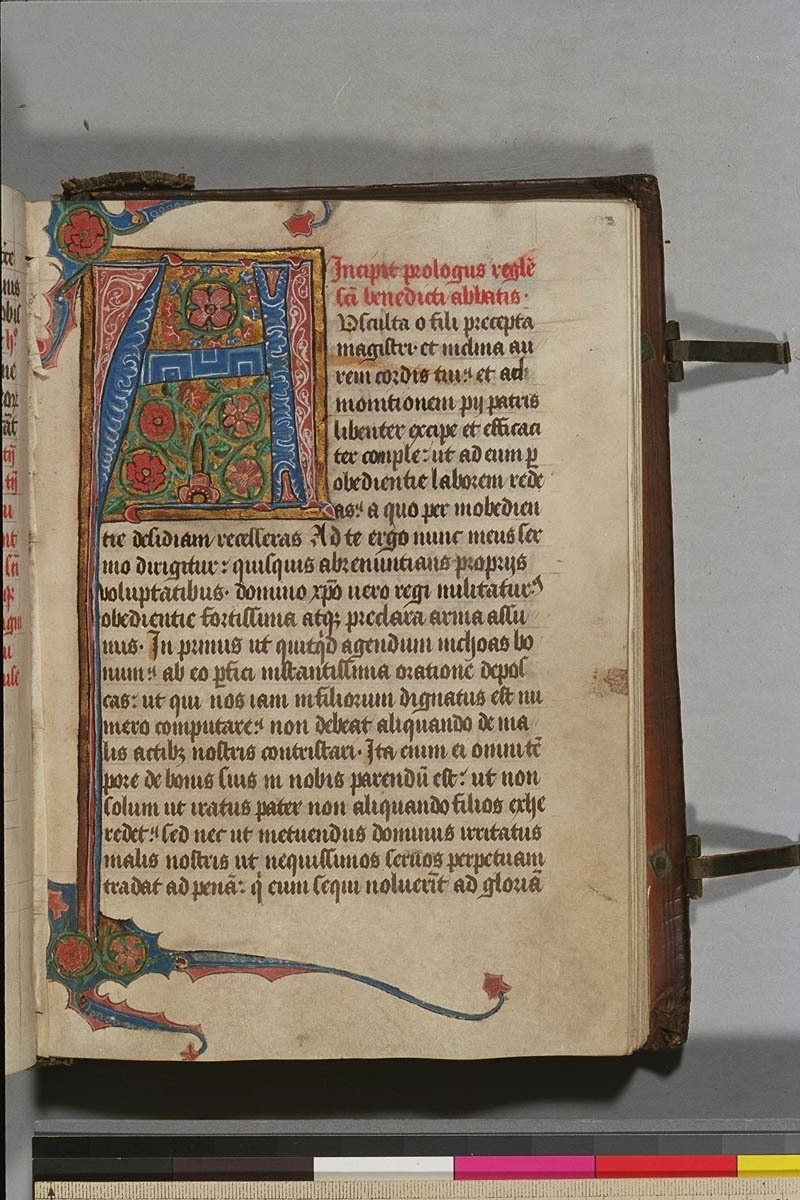 103
Incipit prologus regle᷒
scī benedicti abbatis·
A Vsculta o fili precepta
magistri· et inclina au
rem cordis tui: et ad
monitionem pij patris
libenter excipe et efficaci
ter comple: ut ad eum ꝑ
obedientie laborem rede
as: a quo per inobedien
tie desidiam recesseras Ad te ergo nunc meus ser
mo dirigitur: quisquis abrenuntians proprijs
voluptatibus· domino xp̄o uero regi militatur⁹
obedientie fortissima atqꝫ preclara arma assu
mis· In primis ut quitqͥd agendum inchoas bo
num: ab eo ꝑfici instantissima oratione depos
cas: ut qui nos iam in filiorum dignatus est nu
mero computare: non debeat aliquando de ma
lis actibꝫ nostris contristari· Ita enim ei omni tē
pore de bonis suis in nobis parendū est: ut non
solum ut iratus pater non aliquando filios exhe
redet: sed nec ut metuendus dominus irritatus
malis nostris ut nequissimos seruos perpetuam
tradat ad penā: qͥ eum sequi noluerīt ad gloriā